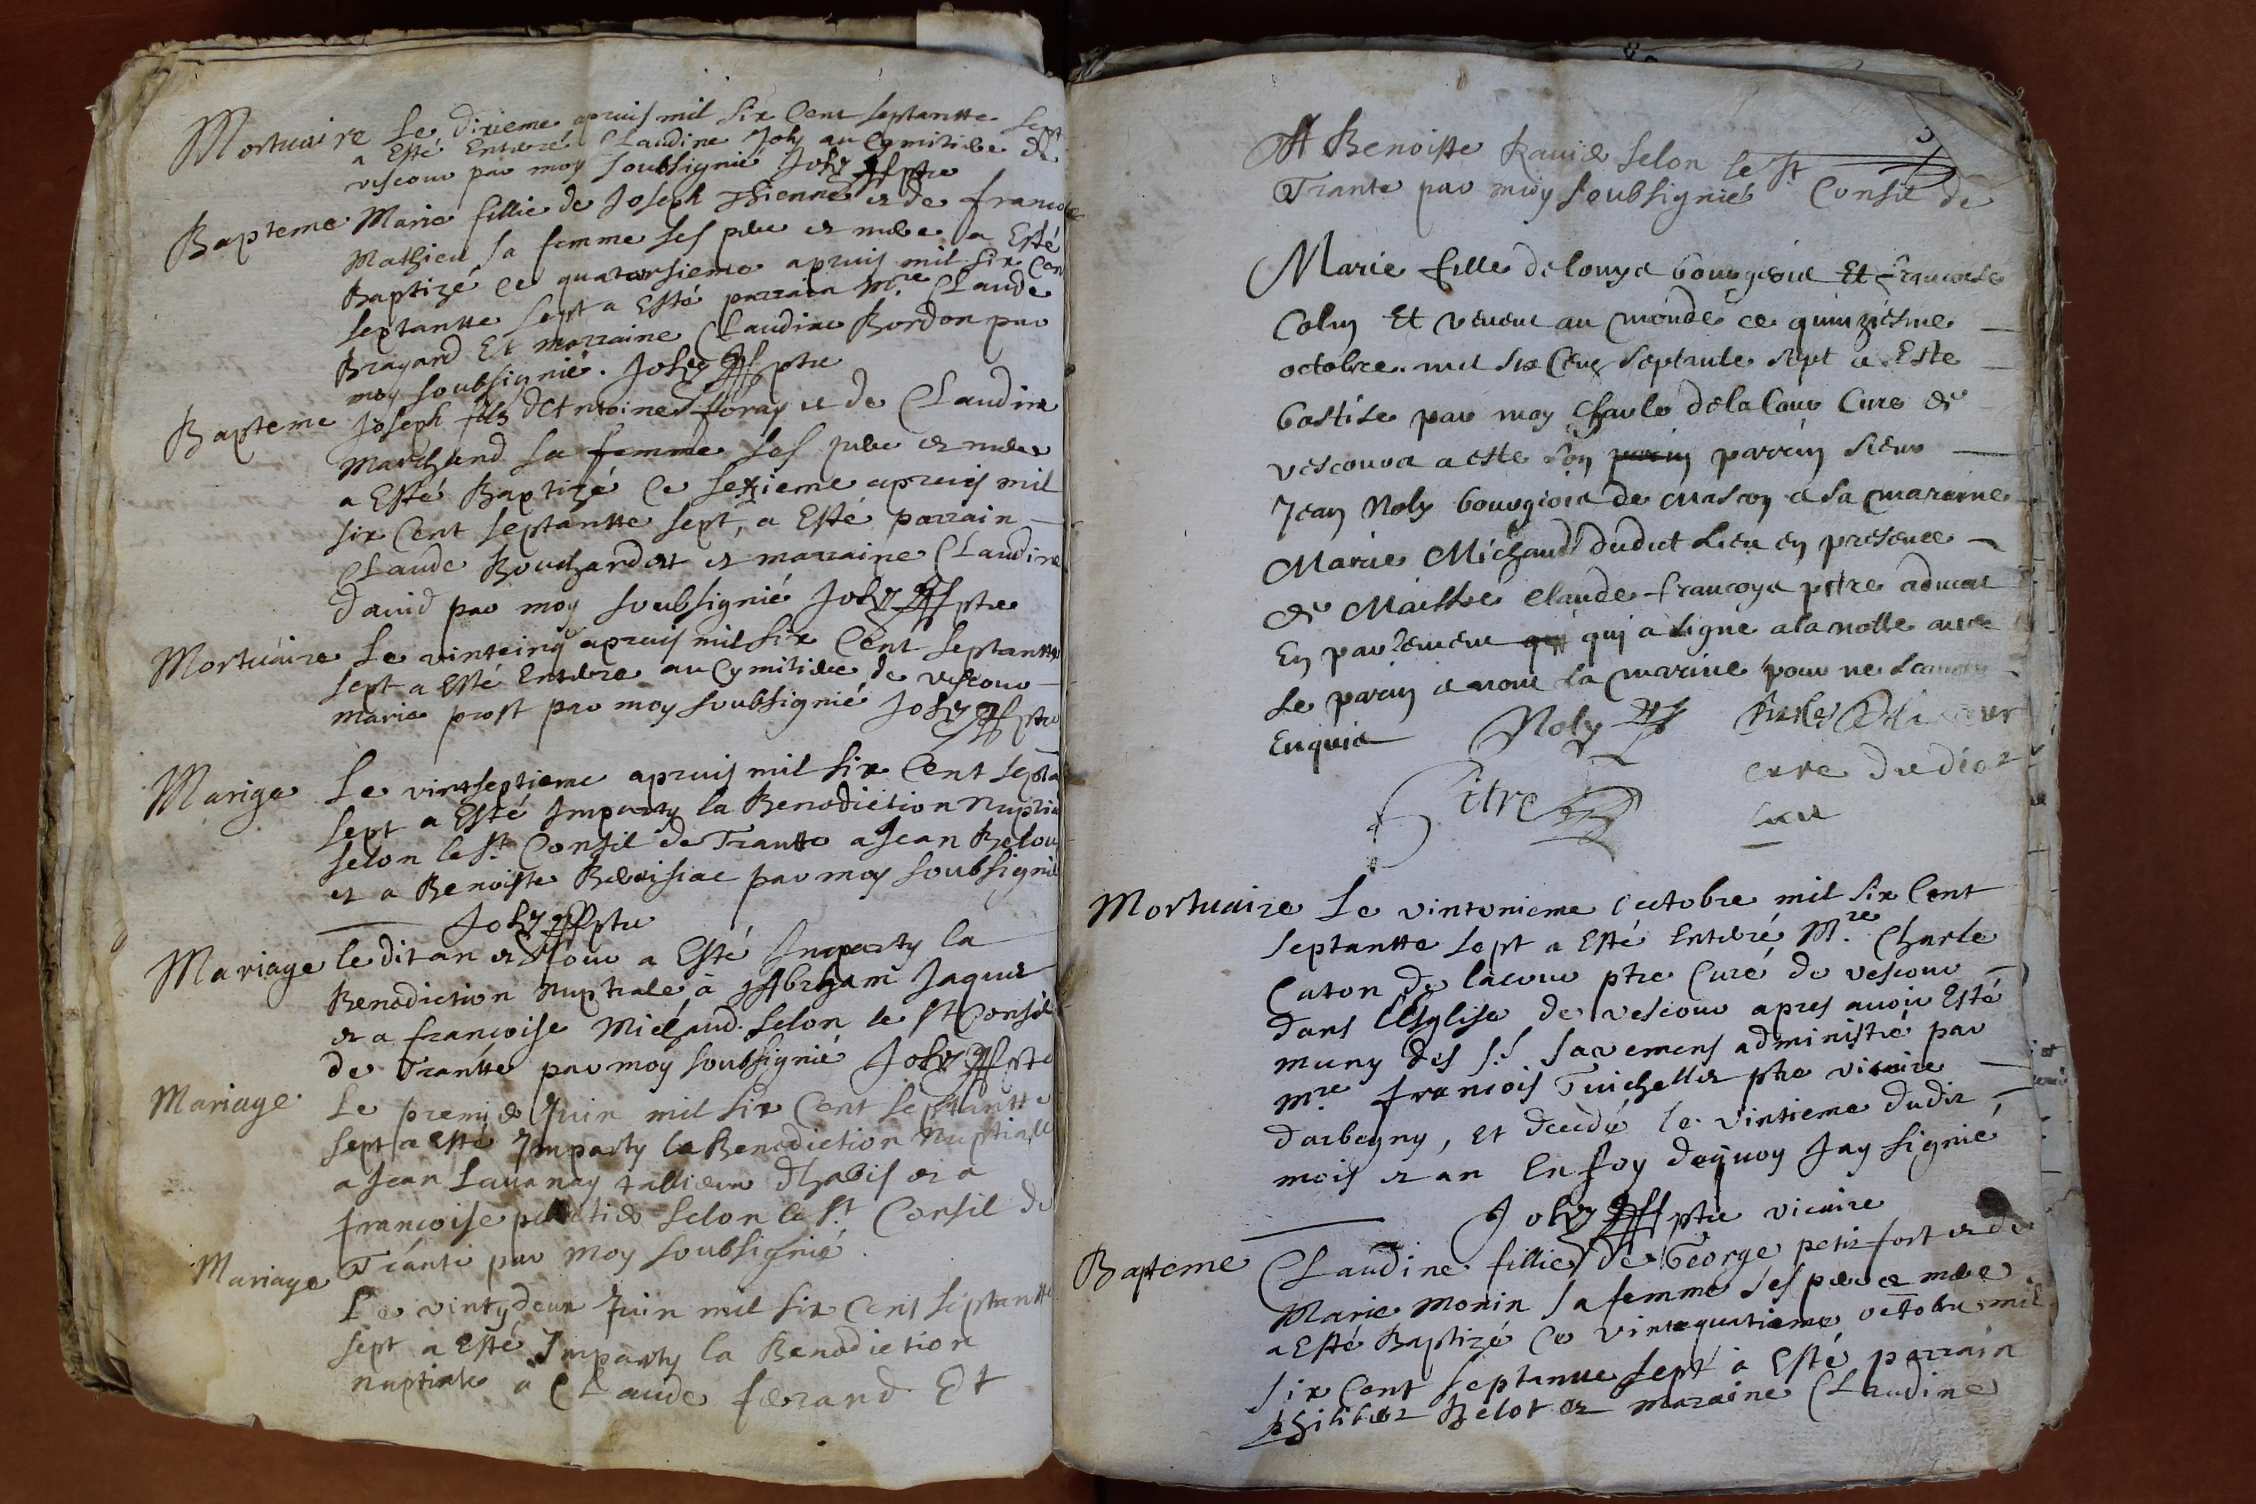 Mortuaire Le dixieme apvril mil six Cent septantte sept
a Esté Enterré Claudine Joly au Cymitiere de
vescour par moy soubsignié Joly ptre
Bapteme Marie fillie de Joseph Thienne et de francoise
Mathieu sa femme ses pere et mere a Esté
Baptizé Ce quatorsieme apvril mil six Cen
septantte sept a Esté parrain Mre Claude
Brayard Et marraine Claudine Bordon par
moy soubsignié. Joly ptre
Bapteme Joseph fils dAntoine foray et de Claudine
Marchand sa femme ses pere et mere
a Esté Baptizé Ce sezieme apvril mil
six Cent septantte sept, a Esté parrain
Claude Bouchardet et marraine Claudine
david par moy soubsignié Joly ptre
Mortuaire Le vintcinq apvril mil six Cent septantte
sept a Esté Enterre au Cymitiere de vescour
marie prost par moy soubsignié Joly ptre
Marige Le vintseptieme apvril mil six Cent septa
sept a Esté Imparty la Benediction Nuptia
selon le St Consil de Trantte a Jean Belou
et a Benoiste par moy soubsignié
Joly ptre
Mariage ledit an et Jour a Esté Imparty la
Benediction nuptiale à Abraham Jaquet
et a francoise Michaud selon le St Consil
de Trantte par moy soubsignié Joly ptre
Mariage Le premier Juin mil six Cent septantte
sept a Esté Imparty la Benediction Nuptialle
a Jean Lauanay tallieur dhabis et a
francoise selon le St Consil de
Trante par moy soubsignié
Mariage Le vintydeux Juin mil six Cent septantte
sept a Esté Imparty la Benediction
nuptiale a Claude ferrand Et
A Benoiste Ravier selon le St Consil de
Trante par moy soubsignié
Marie fille de louys bourgeois Et francoise
Colin Et venue au monde ce quinziesme
octobre mil six Cens septante sept a Este
batise par moy Charle dela Cour Cure de
vescours a este son parin parrin sieur
Jean Noly bourgiois de mascon et sa mareine
Marie Michaud dudict Lieu en presence
de Maistre Claude francoys pitre aduocat
En parlement qui qui a signe a la notte avec
Le parin et non la marine pour ne scauoir
Enquis Noly Charles Delacour
Pitre cure dudict
lieu
Mortuaire Le vintunieme Octobre mil six Cent
septantte sept a Esté Enterré Mre Charle
Caton de lacour ptre Curé de vescour
dans lEsglise de vescour apres avoir Esté
muny des Sts Sacremens administré par
mre francois Tuichellet ptre vicaire
darbegny, Et decedé le vintieme dudit
mois et an En foy dequoy Jay signié
Joly ptre vicaire
Bapteme Claudine fillie de George petitfort et de
Marie Monin sa femme ses pere et mere
a Esté Baptizé Ce vintequatrieme octobre mil
six Cent septantte sept a Esté parrain
philibert Belot et maraine Claudine